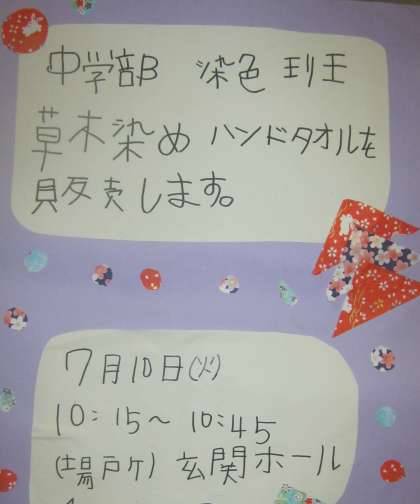 中学部B 染色班
草木染め ハンドタオルを
販売します。
7月10日(火)
10:15~10:45
(場所) 玄関ホール